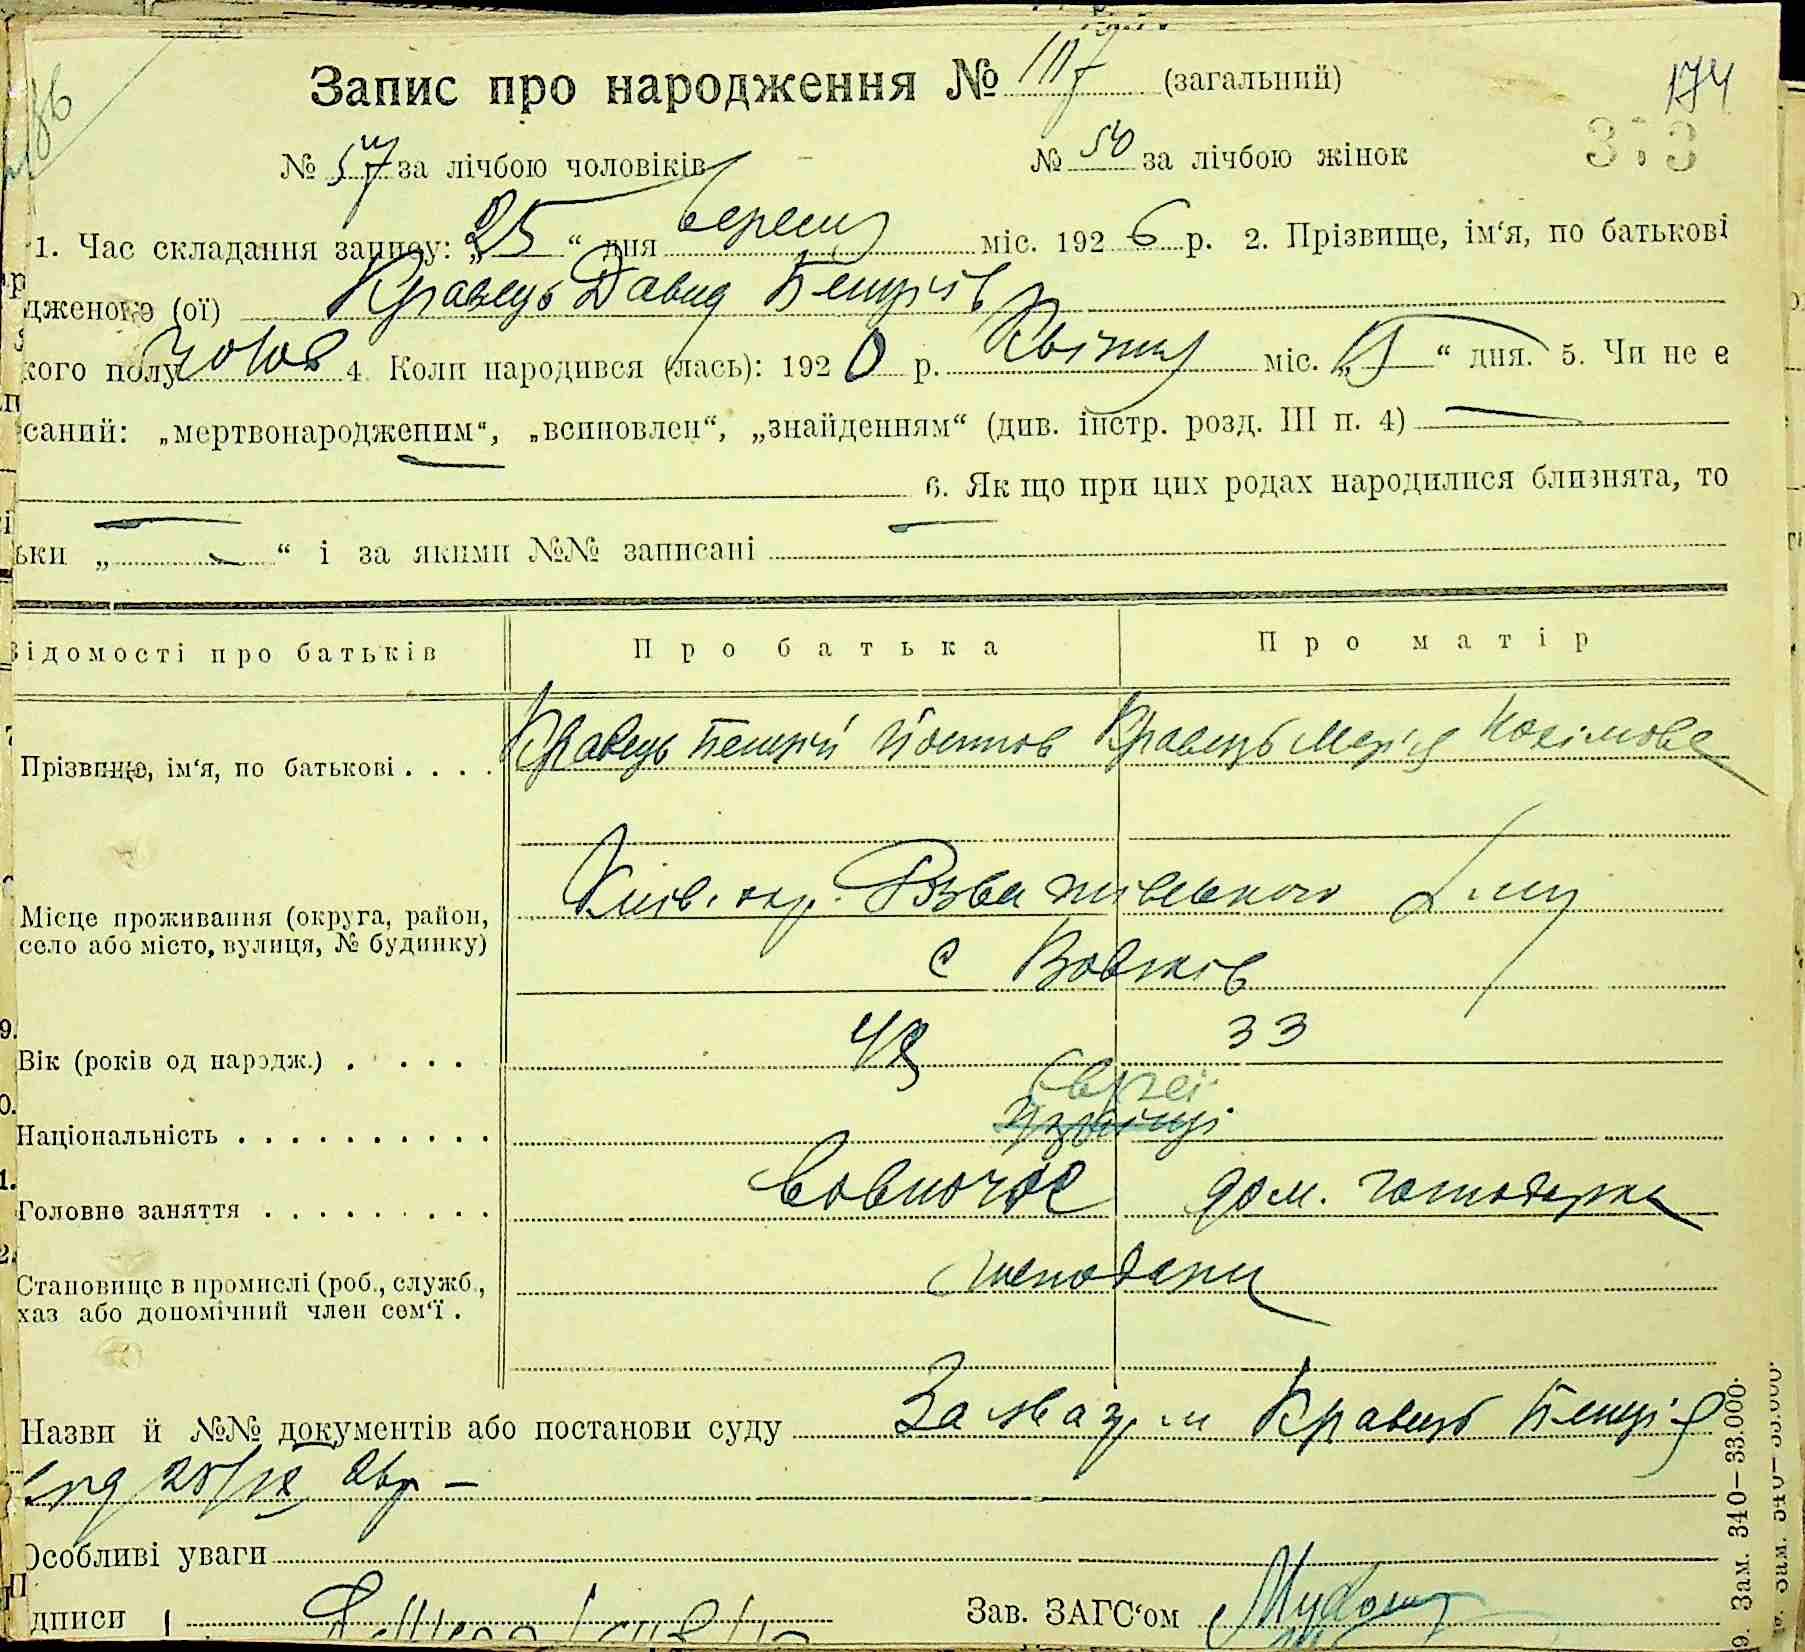 174
Запис про народження № 117 (загальний)
373
№ 57 за лічбою чоловіків № 50 за лічбою жінок
1. Час складання запису: „25“ дня вересня міс. 1926 р. 2. Прізвище, ім‘я, по батькові
дженого (ої) Кравець Давид Петрів
кого полу чолов 4. Коли народився (лась): 1920 р. Квітня міс. „ “ дня. 5. Чи не є
саний: „мертвонародженим“, „всиновлен“, „знайденням“ (див. інстр. розд. III п. 4)
6. Якщо при цих родах народилися близнята, то
ьки „ “ і за якими №№ записані
Відомості про батьків Про батька Про матір
Прізвище, ім‘я, по батькові . . . . Кравець Петрій Кравець Марія
Місце проживання (округа, район, село або місто, вулиця, № будинку) Київ. окр. Розважівського р-ну
с
Вік (років од народж.) . . . . . 48 33
Євреї
Національність . . . . . . . . . . Українці
Головне заняття . . . . . . . . . дом. господарка
Становище в промислі (роб., служб., хаз або допомічний член сем‘ї . господарі
Назви й №№ документів або постанови суду Заява гр-на Кравець Петрія
від 25/IX 26р –
Особливі уваги
дписи Зав. ЗАГС‘ом
Зам. 340–33.000.